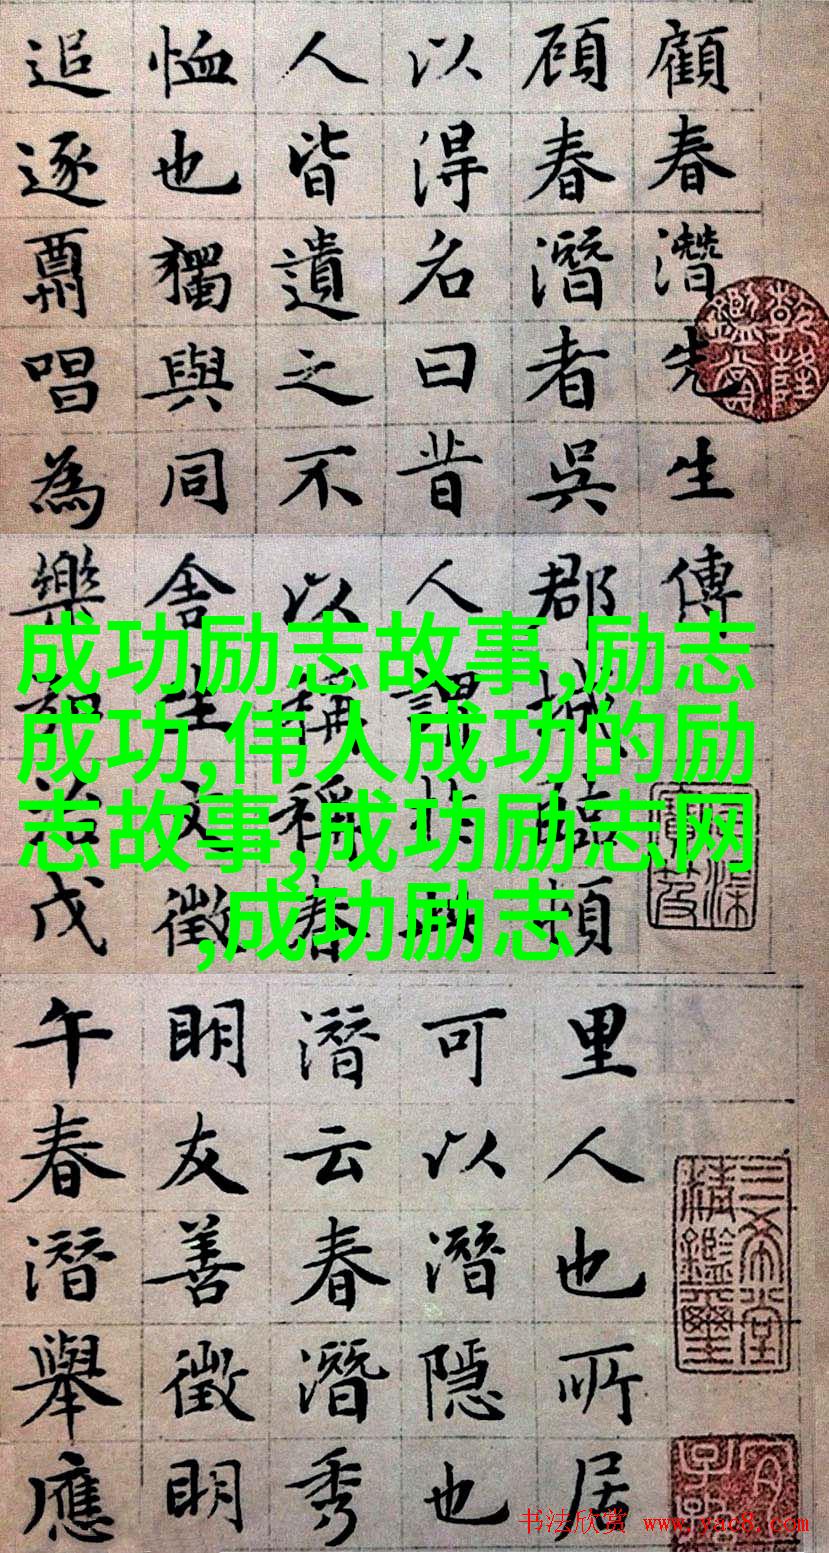 顧春潛先生傳
頋春潛者吳郡城臨頓里人也所居
以得名曰昔人謂可以潛隱也
人皆遺之不以稱稱春潛云春潛秀
恤也獨與同舍生文徵明友善徵明
追逐酬唱為樂治戊午春潛舉應
成功励志故事,励志
成功,伟人成功的励
志故事,成功励志网
,成功励志
乾隆鑑賞
三希堂精鑑璽
书法欣赏 www.yac8.com